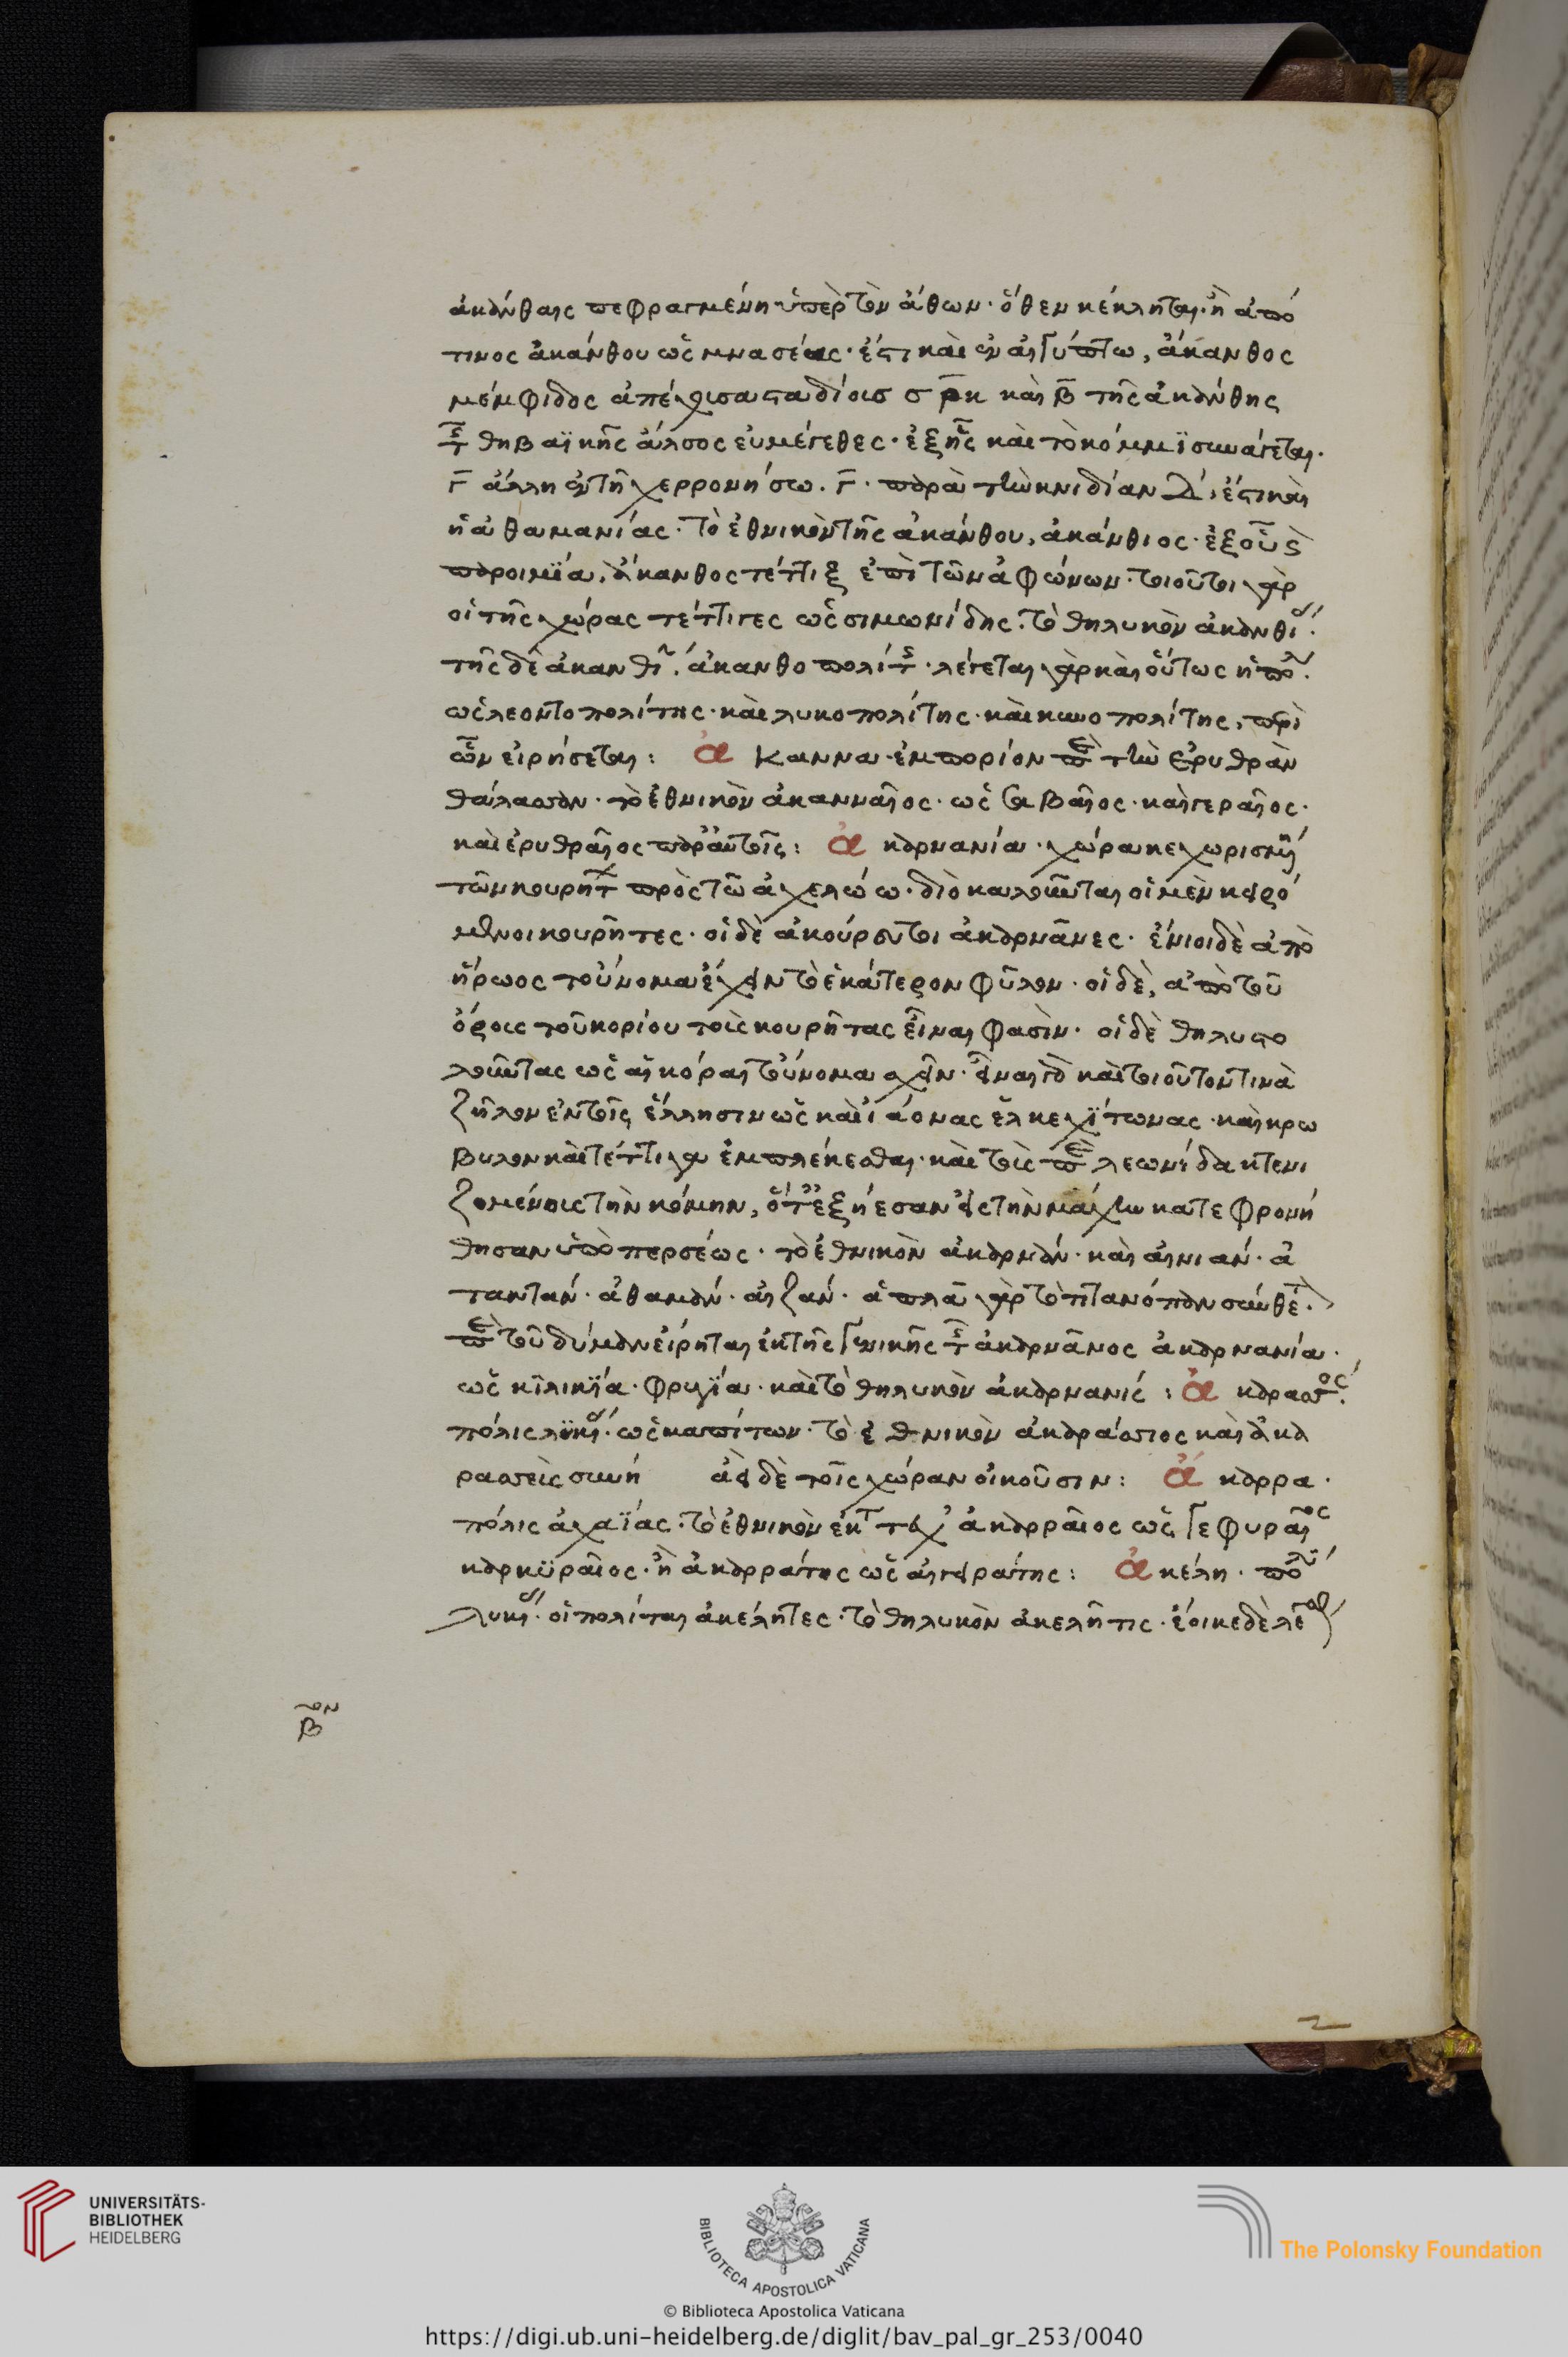 ἀκάνθαις πεφραγμένη ὑπὲρ τὸν ἄθων· ὅθεν κέκληται· ἢ ἀπό
τινος ἀκάνθου ὡς μνασέας· ἔστι καὶ ἐν αἰγύπτω, ἄκανθος
μέμφιδος ἀπέχουσα σταδίοισ σ ρκ καὶ β τῆς ἀκάνθης
τ θηβαϊκῆς ἄλσος εὐμέγεθες· ἐξ ἧς καὶ τὸ κόμμϊ συνάγεται·
γ ἄλλη ἐν τῆ χερρονήσω. γ· παρὰ τὴν κνιδίαν Δ, ἔστι καὶ
ἡ ἀθαμανίας· τὸ ἐθνικὸν τῆς ἀκάνθου, ἀκάνθιος· ἐξ οὗ ς
παροιμία, ἀκανθος τέττιξ ἐπὶ τῶν ἀφώνων· τοιοῦτοι γὰρ
οἱ τῆς χώρας τέττιγες ὡς σιμωνίδης. τὸ θηλυκὸν ἀκανθι
τῆς δὲ ἀκανθ. ἀκανθοπολίτ· λέγεται γὰρ καὶ οὕτως ἡ πό
ὡς λεοντοπολίτης· καὶ λυκοπολίτης· καὶ κυνοπολίτης, περὶ
ὧν εἰρήσεται: ἄ κανναι· ἐμπορίον π τὴν ἐρυθρὰν
θάλασσαν· τὸ ἐθνικὸν ἀκανναῖος· ὡς σαβαῖος· καὶ γεραῖος·
καὶ ἐρυθραῖος παρ' αὐτοῖς: ἀ καρνανία· χώρα κεχωρισμ
τῶν κουρητ πρὸς τῶ ἀχελώω· διὸ καλοῦνται οἱ μὲν κειρό
μενοι κουρῆτες· οἱ δὲ ἀκούρευτοι ἀκαρνᾶνες· ἔνιοι δὲ ἀπὸ
ἥρωος τοὔνομα ἔχειν τὸ ἑκάτερον φῦλον· οἱ δὲ, ἀπὸ τοῦ
ὄρους τοῦ κορίου τοὺς κουρῆτας εἶναι φασὶν· οἱ δὲ θηλυστο
λοῦντας ὡς αἱ κόραι τοὔνομα σχεῖν· εἶναι γὰρ καὶ τοιοῦτον τινὰ
ζῆλον ἐν τοῖς ἕλλησιν ὡς καὶ ἰάονας ἕλκεχίτωνας· καὶ κρω
βυλον καὶ τέττιγα ἐμπλέκεσθαι· καὶ τοὺς π λεωνίδα κτενι
ζομένοις τὴν κόμην, ὅτ' ἐξήεσαν εἰς τὴν μάχην κατεφρονή
θησαν ὑπὸ περσέως· τὸ ἐθνικὸν ἀκαρνάν· καὶ αἰνιάν· ἀ
τανταν· ἀθαμάν· αἰζάν· ἁπλᾶ γὰρ τὸ τιτανόπαν σύνθε·
π τοῦ δυμᾶν εἰρηται ἐκ τῆς γενικῆς τ ἀκαρνᾶνος ἀκαρνανία·
ὡς κϊλικϊα· φρυγϊα· καὶ τὸ θηλυκὸν ἀκαρνανις: ἀ καρασσ·
πόλις λυκ· ὡς καπίτων· τὸ ἐθνικὸν ἀκαράσσιος καὶ ἀκα
ρασσεὺς συνή ἀεὶ δὲ τοῖς χώραν οἰκοῦσιν: ἀ καρρα·
πόλις ἀχαΐας· τὸ ἐθνικὸν ἐκ τ τάχ' ἀκαρραῖος ὡς γεφυραῖος
καρκϋραῖος· ἢ ἀκαρράτης ὡς αἰγειράτης: ἀ κέλη· πό
λυκ· οἱ πολίται ἀκελῆτες· τὸ θηλυκὸν ἀκελῆτις· ἔοικε δὲ λέ
β
UNIVERSITÄTS-
BIBLIOTHEK
HEIDELBERG
BIBLIOTECA APOSTOLICA VATICANA
The Polonsky Foundation
© Biblioteca Apostolica Vaticana
https://digi.ub.uni-heidelberg.de/diglit/bav_pal_gr_253/0040